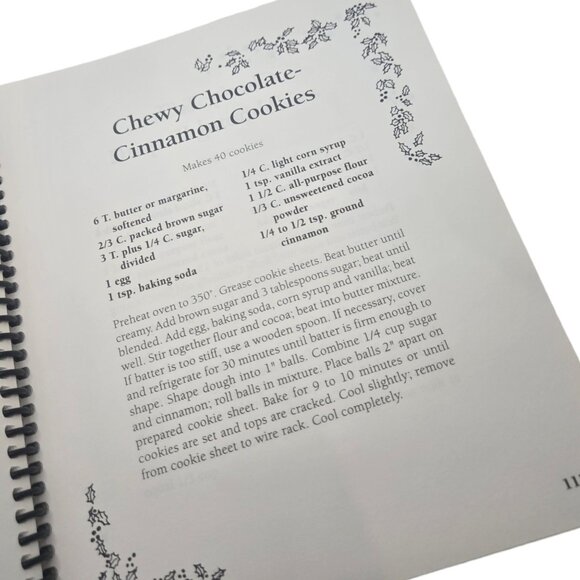 Chewy Chocolate-
Cinnamon Cookies
Makes 40 cookies
6 T. butter or margarine,
softened
2/3 C. packed brown sugar
3 T. plus 1/4 C. sugar,
divided
1 egg
1 tsp. baking soda
1/4 C. light corn syrup
1 tsp. vanilla extract
1 1/2 C. all-purpose flour
1/3 C. unsweetened cocoa
powder
1/4 to 1/2 tsp. ground
cinnamon
Preheat oven to 350°. Grease cookie sheets. Beat butter until
creamy. Add brown sugar and 3 tablespoons sugar; beat until
blended. Add egg, baking soda, corn syrup and vanilla; beat
well. Stir together flour and cocoa; beat into butter mixture.
If batter is too stiff, use a wooden spoon. If necessary, cover
and refrigerate for 30 minutes until batter is firm enough to
shape. Shape dough into 1" balls. Combine 1/4 cup sugar
and cinnamon; roll balls in mixture. Place balls 2" apart on
prepared cookie sheet. Bake for 9 to 10 minutes or until
cookies are set and tops are cracked. Cool slightly; remove
from cookie sheet to wire rack. Cool completely.